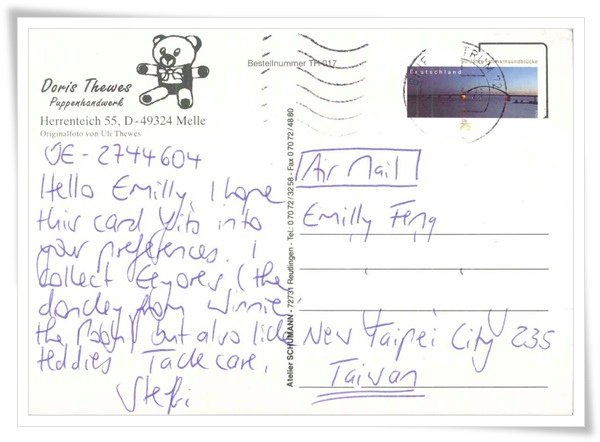 Doris Thewes
Puppenhandwerk
Herrenteich 55, D-49324 Melle
Originalfoto von Uli Thewes
Bestellnummer TH 017
Deutschland
DE-2744604
Hello Emilly, I hope
this card fits into
your preferences. I
collect Eeyores (the
donkey from Winnie
the Pooh) but also like
teddies Take care,
Steffi
Atelier SCHUMANN - 72731 Reutlingen - Tel.: 07072/3258 - Fax 07072/4880
Air Mail
Emilly Feng
New Taipei City 235
Taiwan